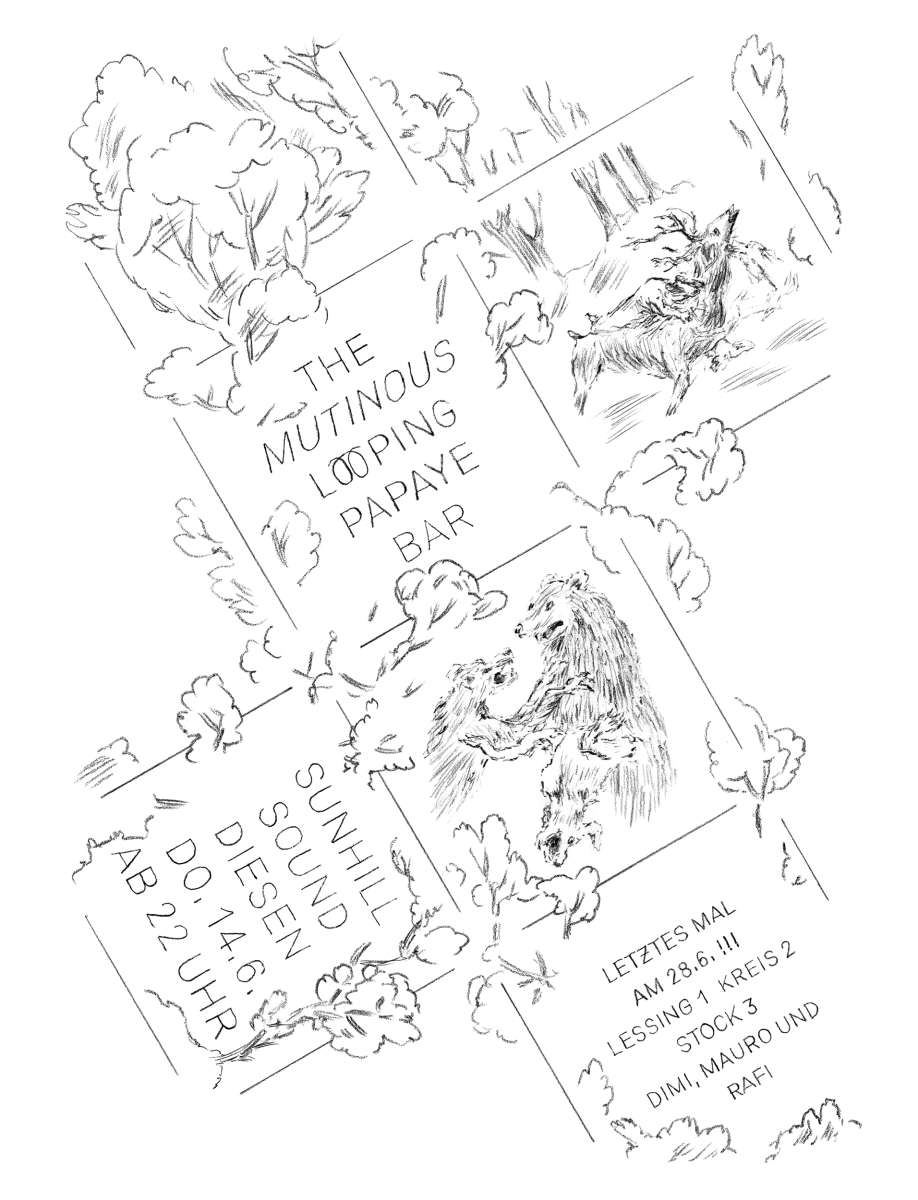 THE
MUTINOUS
LOOPING
PAPAYE
BAR
SUNHILL
SOUND
DIESEN
DO, 14.6.
AB 22 UHR
LETZTES MAL
AM 28.6. !!!
LESSING 1 KREIS 2
STOCK 3
DIMI, MAURO UND
RAFI